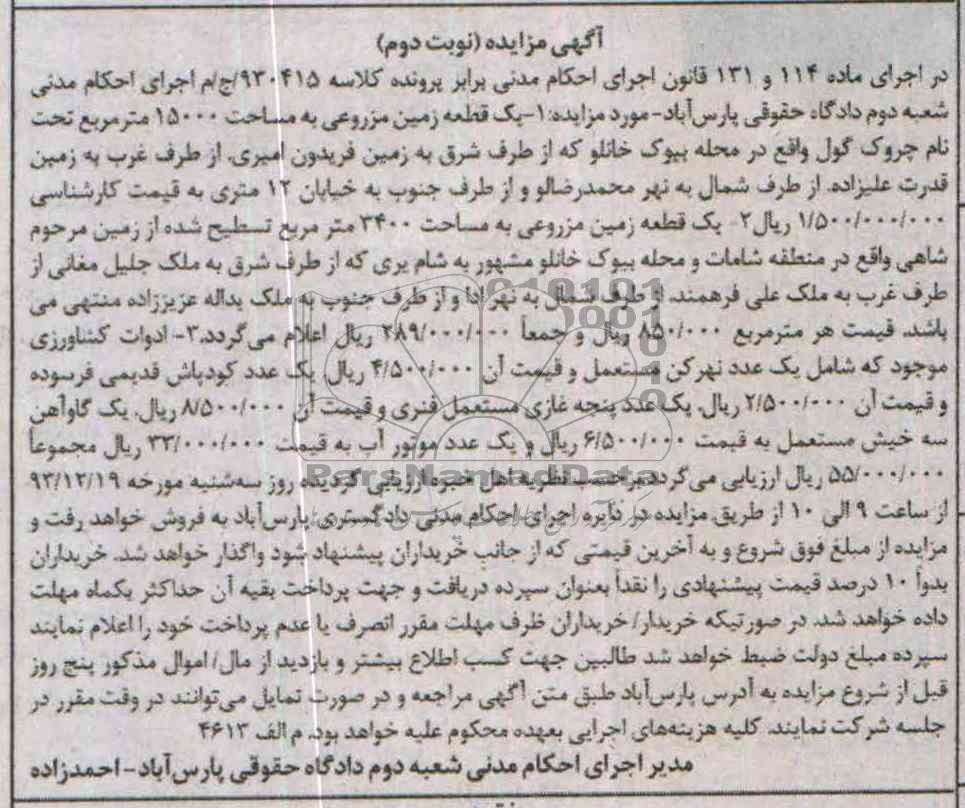 آگهی مزایده (نوبت دوم)
در اجرای ماده ۱۱۴ و ۱۳۱ قانون اجرای احکام مدنی برابر پرونده کلاسه ۹۳۰۴۱۵/ج/م اجرای احکام مدنی
شعبه دوم دادگاه حقوقی پارس‌آباد- مورد مزایده:۱-یک قطعه زمین مزروعی به مساحت ۱۵۰۰۰ مترمربع تحت
نام چروک گول واقع در محله بیوک خانلو که از طرف شرق به زمین فریدون امیری. از طرف غرب به زمین
قدرت علیزاده. از طرف شمال به نهر محمدرضالو و از طرف جنوب به خیابان ۱۲ متری به قیمت کارشناسی
۱/۵۰۰/۰۰۰/۰۰۰ ریال ۲- یک قطعه زمین مزروعی به مساحت ۳۴۰۰ متر مربع تسطیح شده از زمین مرحوم
شاهی واقع در منطقه شامات و محله بیوک خانلو مشهور به شام یری که از طرف شرق به ملک جلیل مغانی از
طرف غرب به ملک علی فرهمند. از طرف شمال به نهر ادا و از طرف جنوب به ملک یداله عزیززاده منتهی می
باشد. قیمت هر مترمربع ۸۵۰/۰۰۰ ریال و جمعاً ۲۸۹/۰۰۰/۰۰۰ ریال اعلام می‌گردد.۳- ادوات کشاورزی
موجود که شامل یک عدد نهرکن مستعمل و قیمت آن ۴/۵۰۰/۰۰۰ ریال. یک عدد کودپاش قدیمی فرسوده
و قیمت آن ۲/۵۰۰/۰۰۰ ریال. یک عدد پنجه غازی مستعمل فنری و قیمت آن ۸/۵۰۰/۰۰۰ ریال. یک گاوآهن
سه خیش مستعمل به قیمت ۶/۵۰۰/۰۰۰ ریال و یک عدد موتور آب به قیمت ۳۳/۰۰۰/۰۰۰ ریال مجموعاً
۵۵/۰۰۰/۰۰۰ ریال ارزیابی می‌گردد برحسب نظریه اهل خبره ارزیابی گردیده روز سه‌شنبه مورخه ۹۳/۱۲/۱۹
ParsNamadData
از ساعت ۹ الی ۱۰ از طریق مزایده در دایره اجرای احکام مدنی دادگستری پارس‌آباد به فروش خواهد رفت و
مزایده از مبلغ فوق شروع و به آخرین قیمتی که از جانب خریداران پیشنهاد شود واگذار خواهد شد. خریداران
بدواً ۱۰ درصد قیمت پیشنهادی را نقداً بعنوان سپرده دریافت و جهت پرداخت بقیه آن حداکثر یکماه مهلت
داده خواهد شد. در صورتیکه خریدار/ خریداران ظرف مهلت مقرر انصرف یا عدم پرداخت خود را اعلام نمایند
سپرده مبلغ دولت ضبط خواهد شد طالبین جهت کسب اطلاع بیشتر و بازدید از مال/ اموال مذکور پنج روز
قبل از شروع مزایده به آدرس پارس‌آباد طبق متن آگهی مراجعه و در صورت تمایل می‌توانند در وقت مقرر در
جلسه شرکت نمایند. کلیه هزینه‌های اجرایی بعهده محکوم علیه خواهد بود. م الف ۴۶۱۳
مدیر اجرای احکام مدنی شعبه دوم دادگاه حقوقی پارس‌آباد- احمدزاده